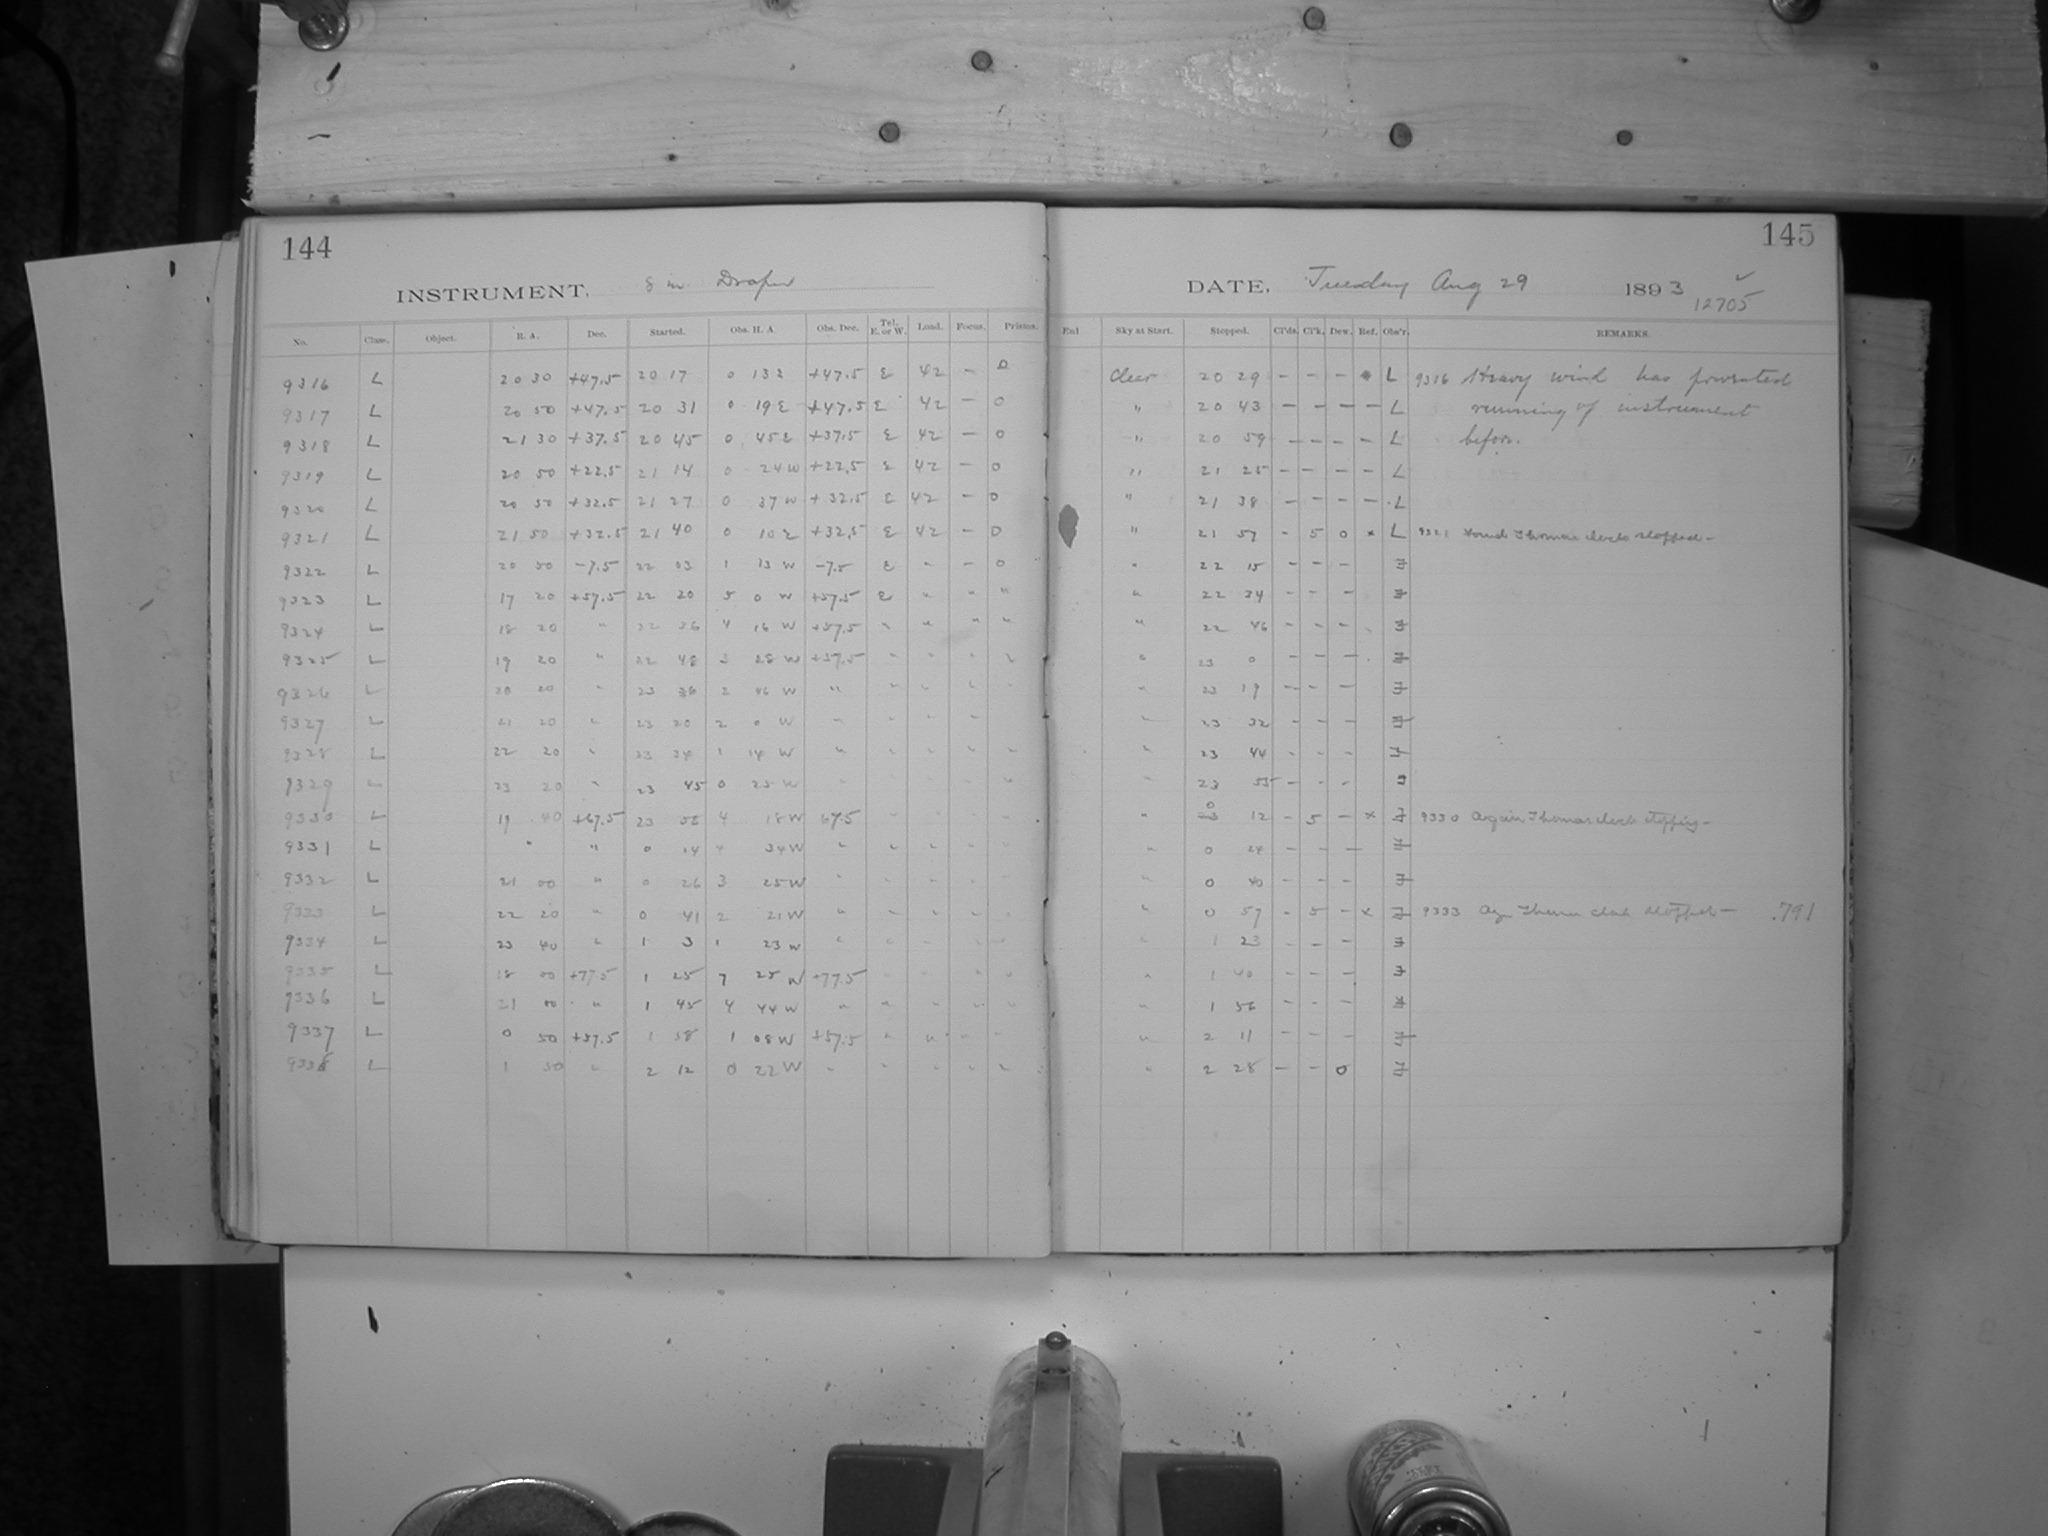 144
INSTRUMENT. 8 in Draper
No. Class. Object. R. A. Dec. Started. Obs. H. A. Obs. Dec. Tel. E. or W. Load. Focus. Prisms.
9316 L 20 30 +47.5 20 17 0 13 E +47.5 E 42 – 0
9317 L 20 50 +47.5 20 31 0 19 E +47.5 E 42 – 0
9318 L 21 30 +37.5 20 45 0 45 E +37.5 E 42 – 0
9319 L 20 50 +22.5 21 14 0 24 W +22.5 E 42 – 0
9320 L 20 50 +32.5 21 27 0 37 W +32.5 E 42 – 0
9321 L 21 50 +32.5 21 40 0 10 E +32.5 E 42 – 0
9322 L 20 50 –7.5 22 03 1 13 W –7.5 E - – 0
9323 L 17 20 +57.5 22 20 5 0 W +57.5 E " " "
9324 L 18 20 " 22 36 4 16 W +57.5 " " " "
9325 L 19 20 " 22 48 3 28 W +57.5 " " " "
9326 L 20 20 " 23 2 46 W " " " " "
9327 L 21 20 " 23 20 2 0 W " " " "
9328 L 22 20 " 23 34 1 14 W " " " " "
9329 L 23 20 " 23 45 0 25 W " " " "
9330 L 19 40 +67.5 23 58 4 18 W 67.5 " " "
9331 L " " 0 14 4 34 W " " " " "
9332 L 21 00 " 0 26 3 25 W " " " "
9333 L 22 20 " 0 41 2 21 W " " " " "
9334 L 23 40 " 1 3 1 23 W " " " "
9335 L 18 00 +77.5 1 25 7 25 W +77.5 " " "
9336 L 21 00 " 1 45 4 44 W " " " " "
9337 L 0 50 +57.5 1 58 1 08 W +57.5 " " "
9338 L 1 50 " 2 12 0 22 W " " " " "
145
DATE. Tuesday Aug 29 1893
12705
End Sky at Start. Stopped. Cl'ds. Cl'k. Dew. Ref. Obs'r. REMARKS.
Clear 20 29 – – – L 9316 Heavy wind has prevented
" 20 43 – – – – L running of instrument
" 20 59 – – – – L before.
" 21 25 – – – – L
" 21 38 – – – – L
" 21 57 – 5 0 x L 9321 Found Thomas clock stopped –
" 22 15 – – –
" 22 34 – – –
" 22 46 – – –
" 23 0 – – –
" 23 19 – – –
" 23 32 – – –
" 23 44 – – –
" 23 55 – – –
" 0 12 – 5 – x 9330 Again Thomas clock stopping –
" 0 24 – – –
" 0 40 – – –
" 0 57 – 5 – x 9333 clock stopped – .791
" 1 23 – – –
" 1 40 – – –
" 1 56 – – –
" 2 11 – – –
" 2 28 – – 0